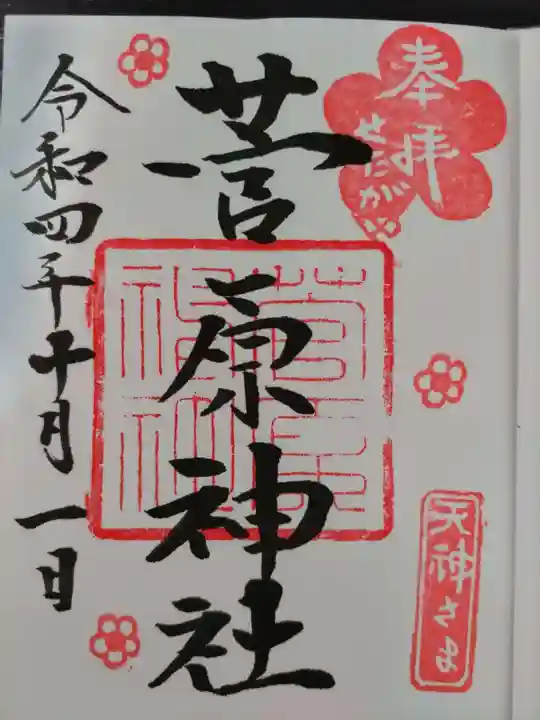 奉拝
せたがや
菅原神社
菅原神社
天神さま
令和四年十月一日